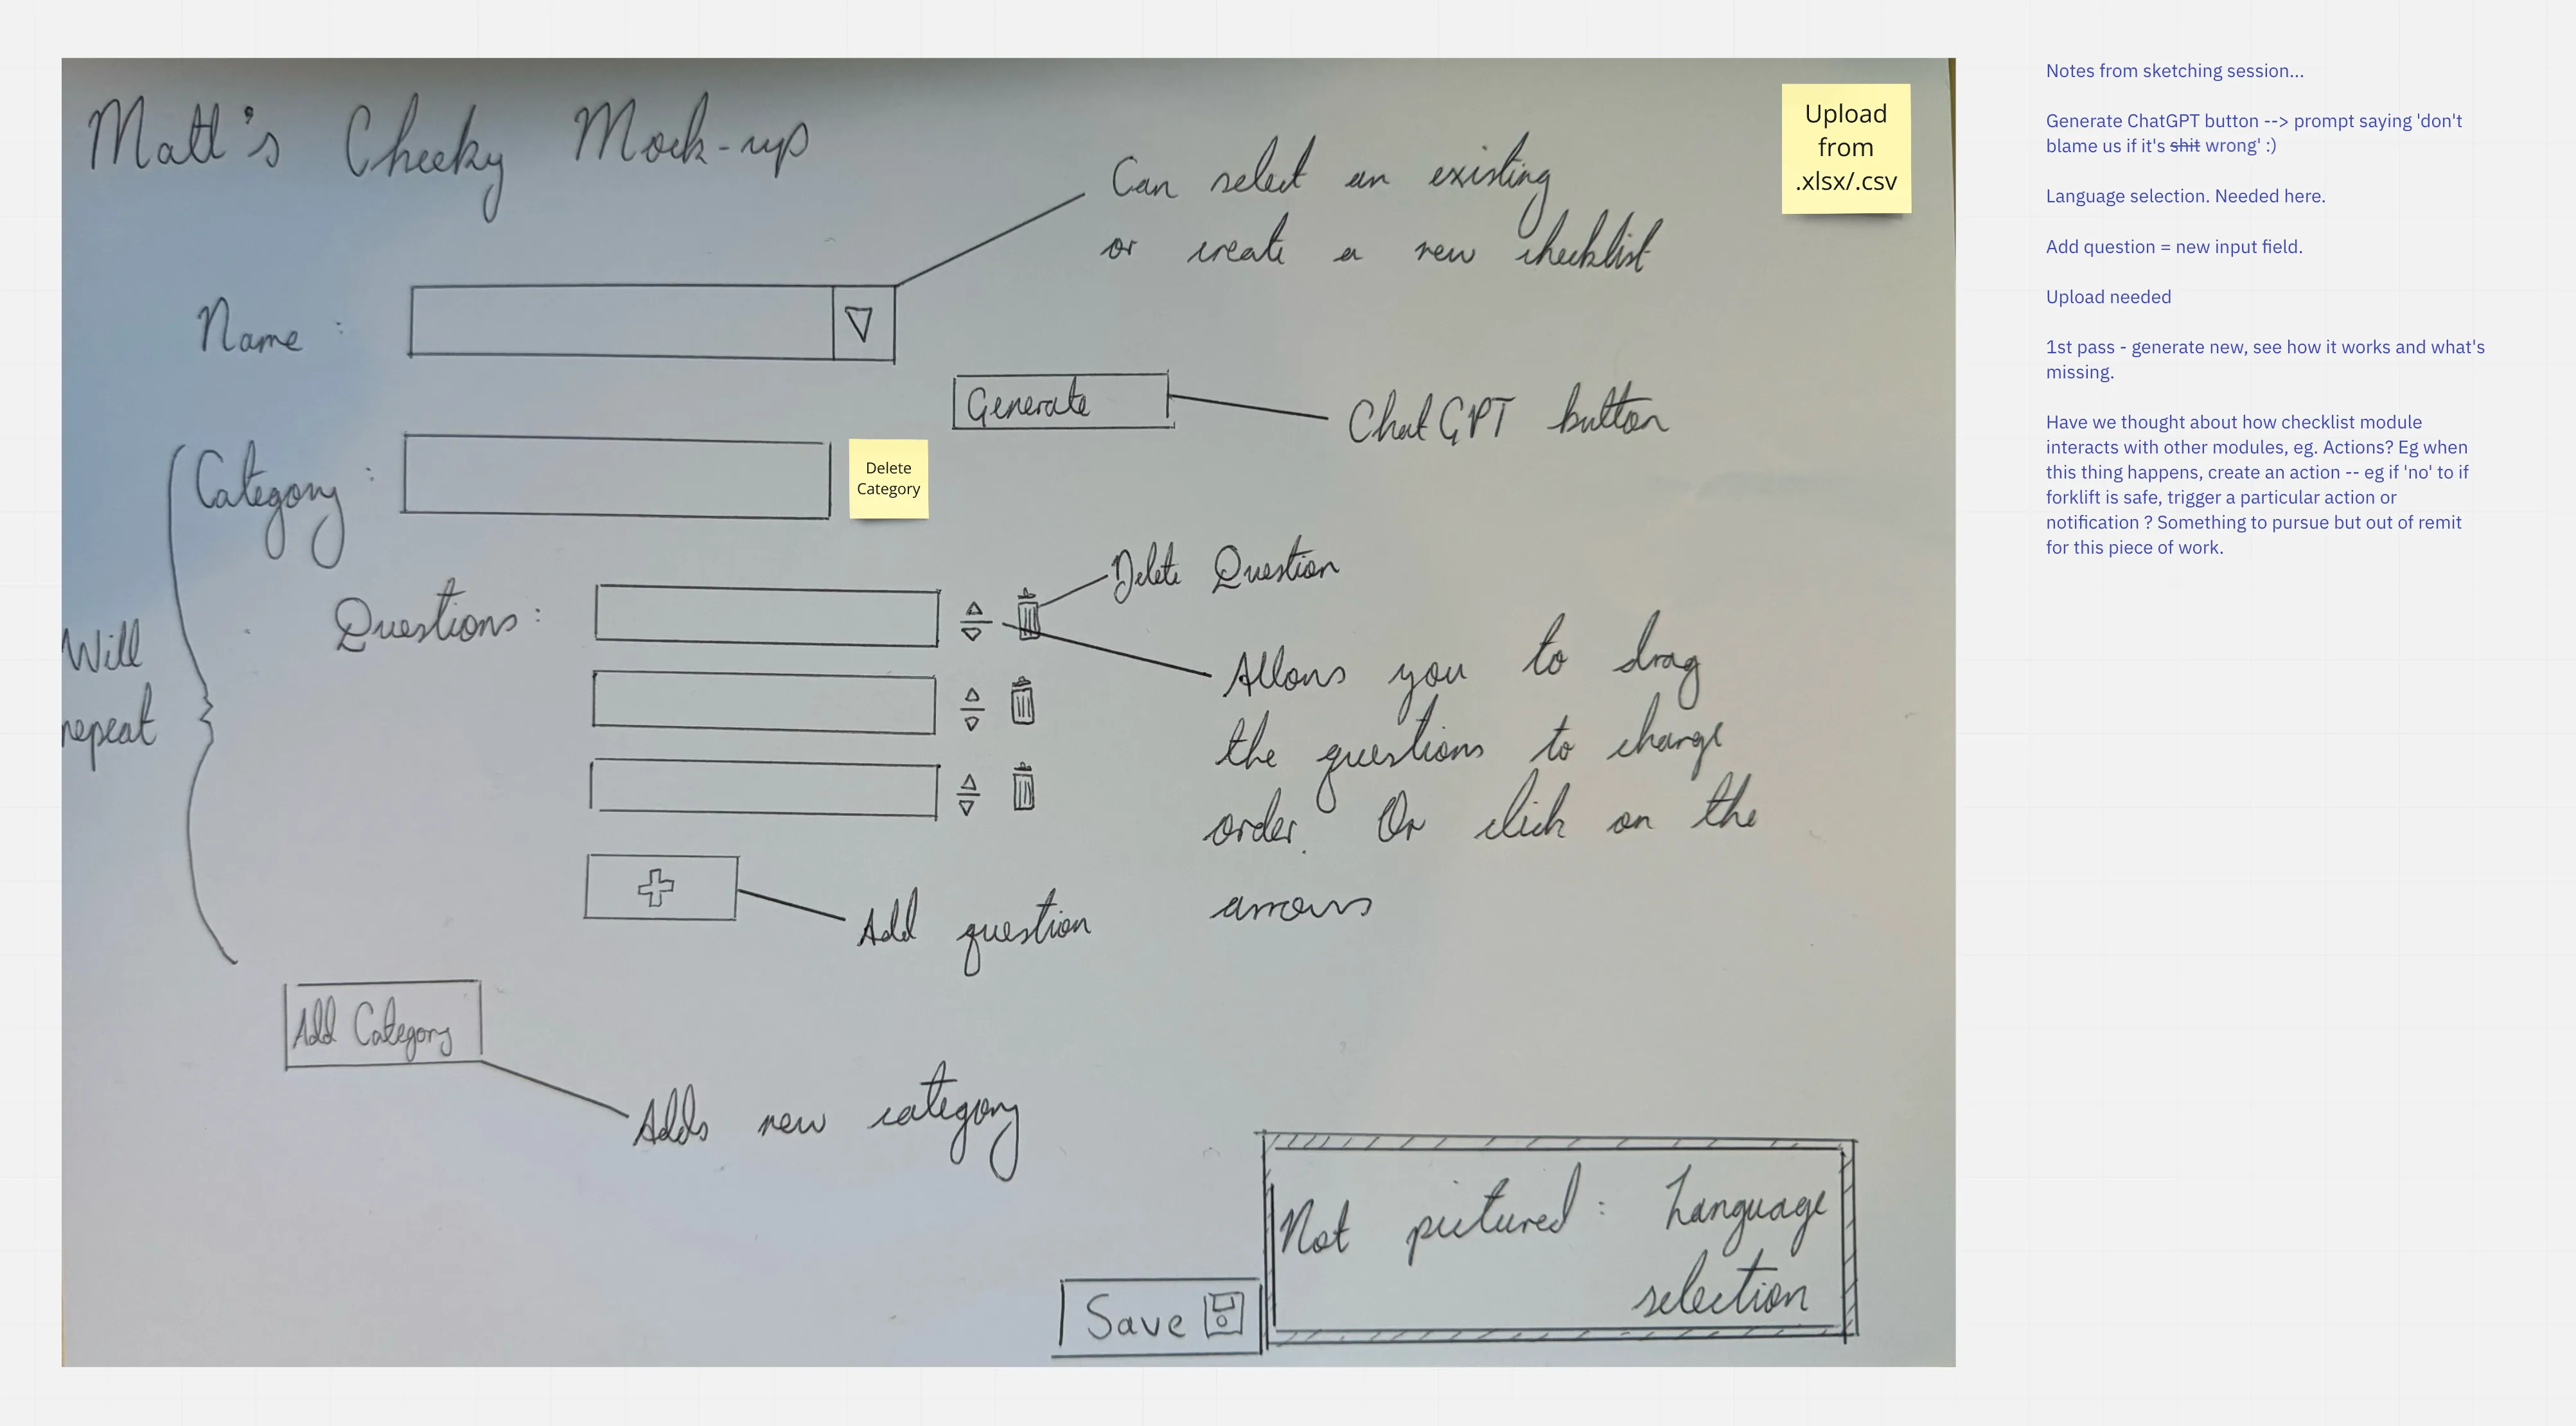 Matt's Cheeky Mock-up
Upload
from
.xlsx/.csv
Can select an existing
or create a new checklist
Name :
Generate
ChatGPT button
Category :
Delete
Category
Delete Question
Questions :
Will
repeat
Allows you to drag
the questions to change
order. Or click on the
arrows
Add question
Add Category
Adds new category
Not pictured : Language
selection
Save
Notes from sketching session...
Generate ChatGPT button --> prompt saying 'don't
blame us if it's shit wrong' :)
Language selection. Needed here.
Add question = new input field.
Upload needed
1st pass - generate new, see how it works and what's
missing.
Have we thought about how checklist module
interacts with other modules, eg. Actions? Eg when
this thing happens, create an action -- eg if 'no' to if
forklift is safe, trigger a particular action or
notification ? Something to pursue but out of remit
for this piece of work.